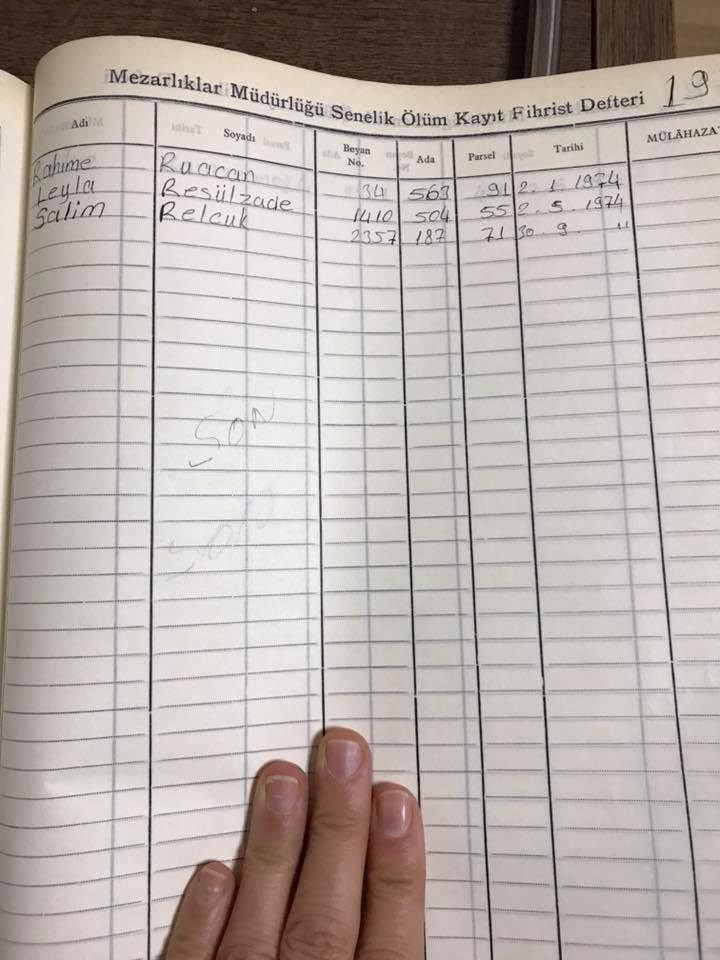 Mezarlıklar Müdürlüğü Senelik Ölüm Kayıt Fihrist Defteri 19
Adi Soyadı Beyan No. Ada Parsel Tarihi MÜLÂHAZA
Rahime Ruacan 34 563 91 2. 1. 1974
Leyla Resülzade 1410 504 55 2. 5. 1974
Salim Relcuk 2357 187 71 30. 9. "
Son
Son